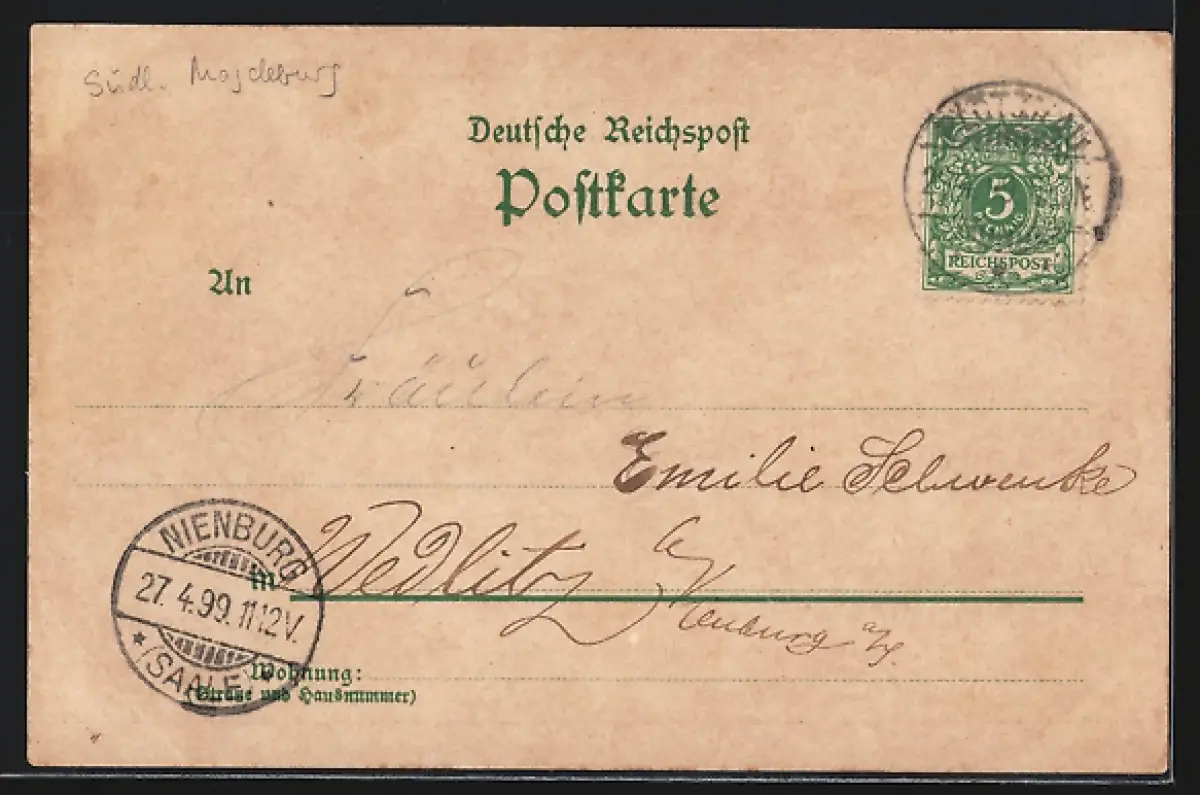 Südl. Magdeburg
Deutsche Reichspost
Postkarte
5
PFENNIG
REICHSPOST
An
Fräulein
Emilie Schwenke
in Wedlitz a/
Nienburg a/S.
NIENBURG
27. 4. 99. 11-12V.
* (SAALE) *
Wohnung:
(Straße und Hausnummer)